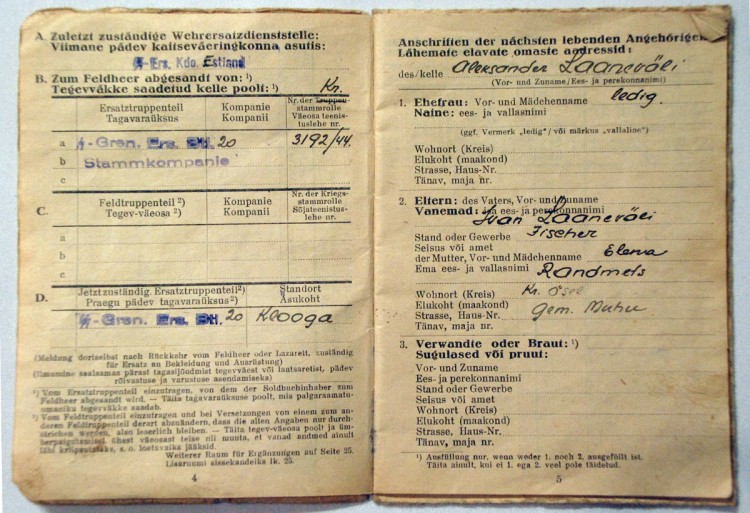 A. Zuletzt zuständige Wehrersatzdienststelle:
Viimane pädev kaitseväeringkonna asutis:
ᛋᛋ-Ers. Kdo. Estland
B. Zum Feldheer abgesandt von: ¹)
Tegevvåkke saadetud kelle poolt: ¹)
Kr.
Ersatztruppenteil
Tagavaraüksus
Kompanie
Kompanii
Nr. der Truppen-
stammrolle
Väeosa teenis-
tuslehe nr.
a ᛋᛋ-Gren. Ers. Btl. 20 3192/44.
b Stammkompanie
c
C. Feldtruppenteil ²)
Tegev-väeosa ²)
Kompanie
Kompanii
Nr. der Kriegs-
stammrolle
Sõjateenistus-
lehe nr.
a
b
c
D. Jetzt zuständig. Ersatztruppenteil ²)
Praegu pädev tagavaraüksus ²)
Standort
Asukoht
ᛋᛋ-Gren. Ers. Btl. 20 Klooga
(Meldung dortselbst nach Rückkehr vom Feldheer oder Lazarett, zuständig
für Ersatz an Bekleidung und Ausrüstung)
(Ilmumine sealsamas pärast tagasijõudmist tegevväest või laatsaretist, pädev
rõivastuse ja varustuse asendamiseks)
¹) Vom Ersatztruppenteil einzutragen, von dem der Soldbuchinhaber zum
Feldheer abgesandt wird. — Täita tagavaraüksuse poolt, mis palgaraamatu-
omaniku tegevväkke saadab.
²) Vom Feldtruppenteil einzutragen und bei Versetzungen von einem zum an-
deren Feldtruppenteil derart abzuändern, dass die alten Angaben nur durch-
strichen werden, also leserlich bleiben. — Täita tegev-väeosa poolt ja üm-
berpaigutamisel ühest väeosast teise nii muuta, et vanad andmed ainult
läbi kriipsutataks, s. o. loetavaiks jääksid.
Weiterer Raum für Ergänzungen auf Seite 25.
Lisaruumi sissekandeiks lk. 25.
4
Anschriften der nächsten lebenden Angehörigen
Lähemate elavate omaste aadressid:
des/kelle Aleksander Laaneväli
(Vor- und Zuname/Ees- ja perekonnanimi)
1. Ehefrau: Vor- und Mädchenname ledig.
Naine: ees- ja vallasnimi
(ggf. Vermerk „ledig"/ või märkus „vallaline")
Wohnort (Kreis)
Elukoht (maakond)
Strasse, Haus-Nr.
Tänav, maja nr.
2. Eltern: des Vaters, Vor- und Zuname
Vanemad: isa ees- ja perekonnanimi
Ivan Laaneväli
Stand oder Gewerbe Fischer
Seisus või amet
der Mutter, Vor- und Mädchenname Elerva
Ema ees- ja vallasnimi Randmets
Wohnort (Kreis) Kr. Ösel
Elukoht (maakond)
Strasse, Haus-Nr. Gem. Muhu
Tänav, maja nr.
3. Verwandte oder Braut: ¹)
Sugulased või pruut:
Vor- und Zuname
Ees- ja perekonnanimi
Stand oder Gewerbe
Seisus või amet
Wohnort (Kreis)
Elukoht (maakond)
Strasse, Haus-Nr.
Tänav, maja nr.
¹) Ausfüllung nur, wenn weder 1. noch 2. ausgefüllt ist.
Täita ainult, kui ei 1. ega 2. veel pole täidetud.
5